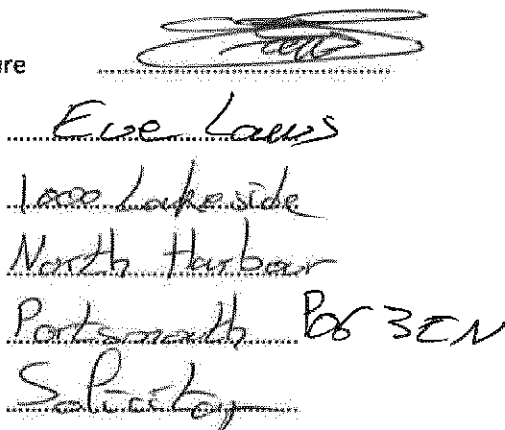 ure
Eve Laws
1000 Lakeside
North Harbour
Portsmouth PO6 3EN
Solicitor